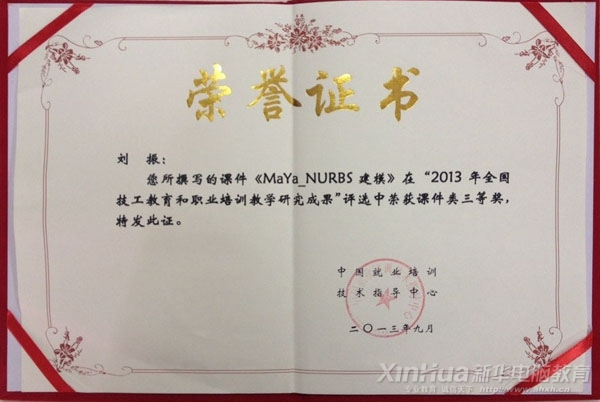 荣誉证书
刘 振：
您所撰写的课件《MaYa_NURBS 建模》在“2013 年全国
技工教育和职业培训教学研究成果”评选中荣获课件类三等奖，
特发此证。
中国就业培训
技术指导中心
二〇一三年九月
XinHua 新华电脑教育
专业教育 诚信天下 http://www.ahxh.cn